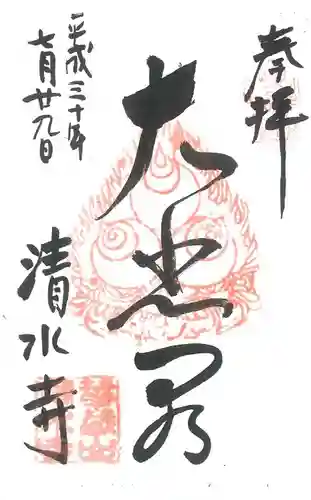 奉拝
大悲閣
平成三十年
七月廿九日
清水寺